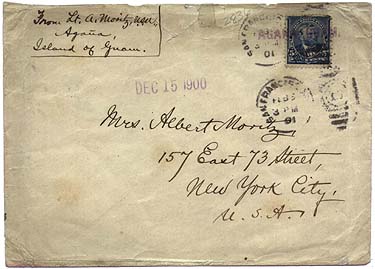 From: Lt. A. Moritz, U.S.N.
Agaña,
Island of Guam.
SAN FRANCISCO
10
DEC 15 1900
SAN FRANCISCO
10
Mrs. Albert Moritz,
157 East 73 Street,
New York City,
U.S.A.